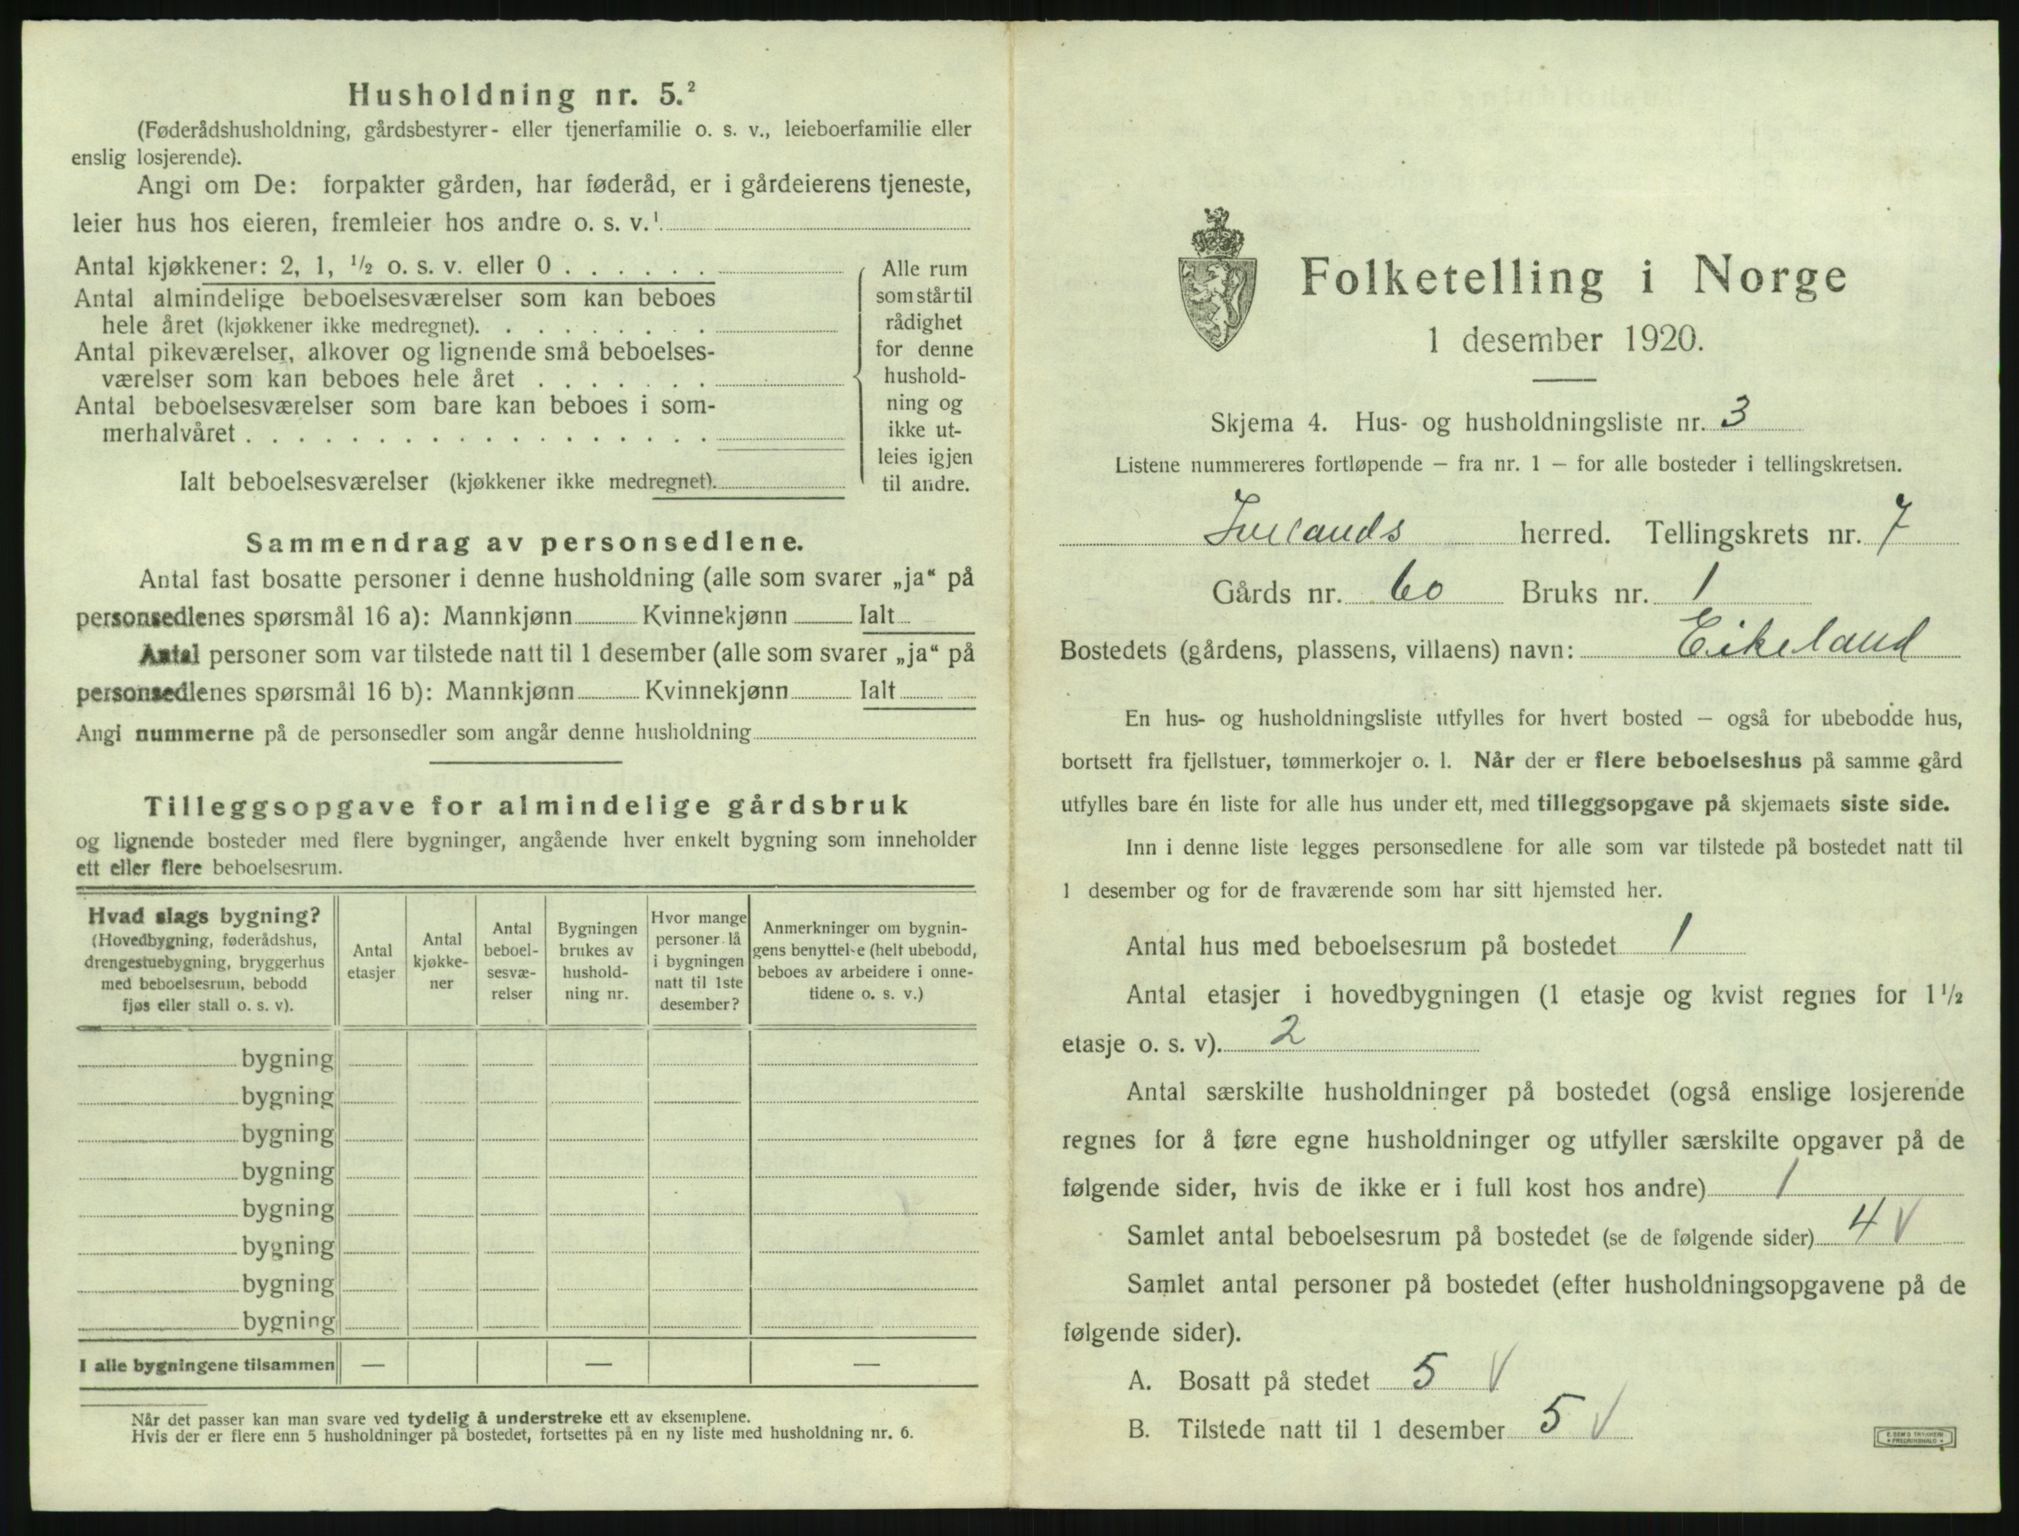 Husholdning nr. 5.²
(Føderådshusholdning, gårdsbestyrer- eller tjenerfamilie o. s. v., leieboerfamilie eller
enslig losjerende).
Angi om De: forpakter gården, har føderåd, er i gårdeierens tjeneste,
leier hus hos eieren, fremleier hos andre o. s. v.¹
Antal kjøkkener: 2, 1, ½ o. s. v. eller 0 . . . . . .
Antal almindelige beboelsesværelser som kan beboes
hele året (kjøkkener ikke medregnet). . . . . . . . .
Antal pikeværelser, alkover og lignende små beboelses-
værelser som kan beboes hele året . . . . . . .
Antal beboelsesværelser som bare kan beboes i som-
merhalvåret . . . . . . . . . . . . . . . . . .
Ialt beboelsesværelser (kjøkkener ikke medregnet).
Alle rum
som står til
rådighet
for denne
hushold-
ning og
ikke ut-
leies igjen
til andre.
Sammendrag av personsedlene.
Antal fast bosatte personer i denne husholdning (alle som svarer „ja“ på
personsedlenes spørsmål 16 a): Mannkjønn Kvinnekjønn Ialt
Antal personer som var tilstede natt til 1 desember (alle som svarer „ja“ på
personsedlenes spørsmål 16 b): Mannkjønn Kvinnekjønn Ialt
Angi nummerne på de personsedler som angår denne husholdning
Tilleggsopgave for almindelige gårdsbruk
og lignende bosteder med flere bygninger, angående hver enkelt bygning som inneholder
ett eller flere beboelsesrum.
Hvad slags bygning?
(Hovedbygning, føderådshus,
drengestuebygning, bryggerhus
med beboelsesrum, bebodd
fjøs eller stall o. s. v).
Antal
etasjer
Antal
kjøkke-
ner
Antal
beboel-
sesvæ-
relser
Bygningen
brukes av
hushold-
ning nr.
Hvor mange
personer lå
i bygningen
natt til 1ste
desember?
Anmerkninger om bygnin-
gens benyttelse (helt ubebodd,
beboes av arbeidere i onne-
tidene o. s. v.)
bygning
bygning
bygning
bygning
bygning
bygning
bygning
bygning
I alle bygningene tilsammen — — —
Når det passer kan man svare ved tydelig å understreke ett av eksemplene.
Hvis der er flere enn 5 husholdninger på bostedet, fortsettes på en ny liste med husholdning nr. 6.
Folketelling i Norge
1 desember 1920.
Skjema 4. Hus- og husholdningsliste nr. 3
Listene nummereres fortløpende — fra nr. 1 — for alle bosteder i tellingskretsen.
Ivelands herred. Tellingskrets nr. 7
Gårds nr. 60 Bruks nr. 1
Bostedets (gårdens, plassens, villaens) navn: Eikeland
En hus- og husholdningsliste utfylles for hvert bosted — også for ubebodde hus,
bortsett fra fjellstuer, tømmerkojer o. l. Når der er flere beboelseshus på samme gård
utfylles bare én liste for alle hus under ett, med tilleggsopgave på skjemaets siste side.
Inn i denne liste legges personsedlene for alle som var tilstede på bostedet natt til
1 desember og for de fraværende som har sitt hjemsted her.
Antal hus med beboelsesrum på bostedet 1
Antal etasjer i hovedbygningen (1 etasje og kvist regnes for 1½
etasje o. s. v). 2
Antal særskilte husholdninger på bostedet (også enslige losjerende
regnes for å føre egne husholdninger og utfyller særskilte opgaver på de
følgende sider, hvis de ikke er i full kost hos andre) 1
Samlet antal beboelsesrum på bostedet (se de følgende sider) 4 V
Samlet antal personer på bostedet (efter husholdningsopgavene på de
følgende sider).
A. Bosatt på stedet 5 V
B. Tilstede natt til 1 desember 5 V